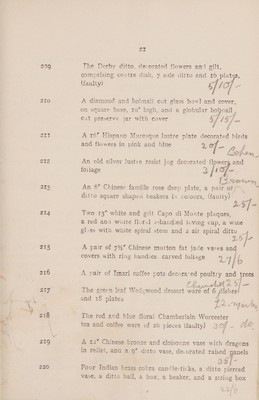 21
209 The Derby ditto, decorated flowers and gilt,
comprising centre dish, 7 side ditto and 16 plates,
(faulty) 5/10/-
210 A diamond and hobnail cut glass bowl and cover,
on square base, 10" high, and a globular hobnail
cut preserve jar with cover 5/15/-
211 A 16" Hispano Mauresque lustre plate decorated birds
and flowers in pink and blue 20/-
212 An old silver lustre resist jug decorated flowers and
foliage 3/10/-
Brown
213 An 8" Chinese famille rose deep plate, a pair of
ditto square shaped beakers in colours, (faulty)
25/-
214 Two 13" white and gilt Capo di Monte plaques,
a red and white floral 2-handled loving cup, a wine
glass with white spiral stem and a air spiral ditto
25/-
215 A pair of 7½" Chinese mutton fat jade vases and
covers with ring handles carved foliage 27/6
216 A pair of Imari coffee pots decorated poultry and trees
25/-
217 The green leaf Wedgwood dessert ware of 6 dishes
and 18 plates
218 The red and blue floral Chamberlain Worcester
tea and coffee ware of 26 pieces (faulty) 30/- do.
219 A 12" Chinese bronze and cloisonne vase with dragons
in relief, and a 9" ditto vase, decorated raised panels
35/-
220 Four Indian brass cobra candle-sticks, a ditto pierced
vase, a ditto ball, a box, a beaker, and a string box